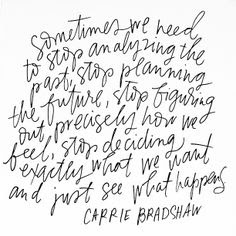 Sometimes we need
to stop analyzing the
past, stop planning
the future, stop figuring
out precisely how we
feel, stop deciding
exactly what we want
and just see what happens
CARRIE BRADSHAW